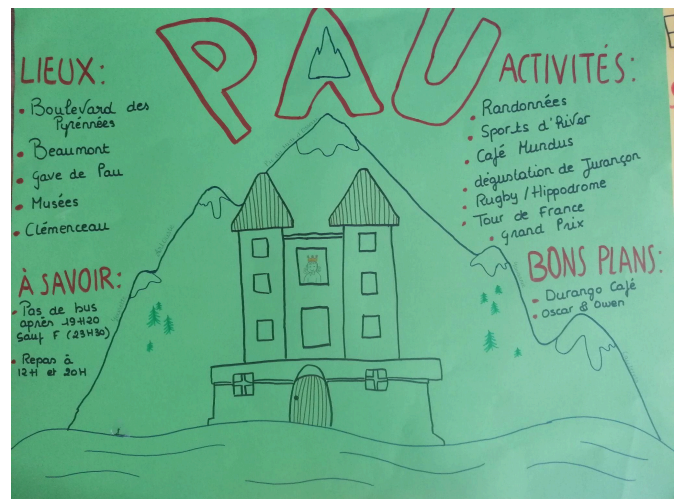 PAU
LIEUX:
• Boulevard des
Pyrénnées
• Beaumont
• Gave de Pau
• Musées
• Clémenceau
À SAVOIR:
• Pas de bus
après 19H20
Sauf F (23H30)
• Repas à
12H et 20H
ACTIVITÉS:
• Randonnées
• Sports d'hiver
• Café Mundus
• dégustation de Jurançon
• Rugby / Hippodrome
• Tour de France
• Grand Prix
BONS PLANS:
• Durango Café
• Oscar & Owen